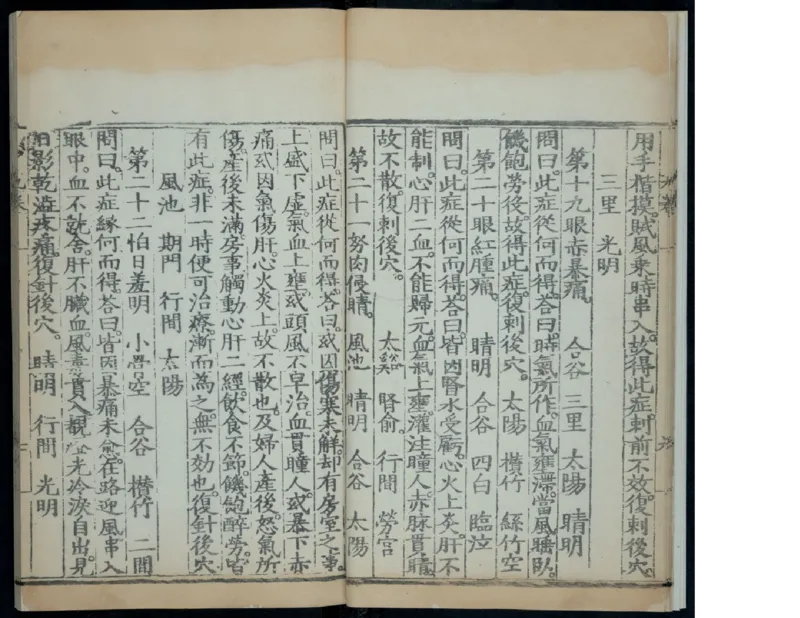 用手楷摸。賊風乘時串入。故得此症。刺前不效。復刺後穴。
三里 光明
第十九眼赤暴痛。 合谷 三里 太陽 睛明
問曰。此症從何而得。答曰。時氣所作。血氣壅滯。當風睡臥。
饑飽勞役。故得此症。復刺後穴。 太陽 攢竹 絲竹空
第二十眼紅腫痛。 睛明 合谷 四白 臨泣
問曰。此症從何而得。答曰。皆因腎水受虧。心火上炎。肝不
能制。心肝二血。不能歸元。血氣上壅。灌注瞳人。赤脉貫睛。
故不散。復刺後穴。 太谿 腎俞 行間 勞宮
第二十一努肉侵睛。 風池 睛明 合谷 太陽
問曰。此症從何而得。答曰。或因傷寒未解。却有房室之事。
上盛下虛。氣血上壅。或頭風不早治。血貫瞳人。或暴下赤
痛。或因氣傷肝。心火炎上。故不散也。及婦人產後。怒氣所
傷。產後未滿。房事觸動心肝二經。飲食不節。饑飽醉勞。皆
有此症。非一時便可治療。漸而為之。無不効也。復針後穴
風池 期門 行間 太陽
第二十二怕日羞明 小骨空 合谷 攢竹 二間
問曰。此症緣何而得。答曰。皆因暴痛未愈。在路迎風。串入
眼中。血不就舍。肝不臟血。風毒貫入。覩光冷淚自出。見
日影乾澁疼痛。復針後穴。 睛明 行間 光明